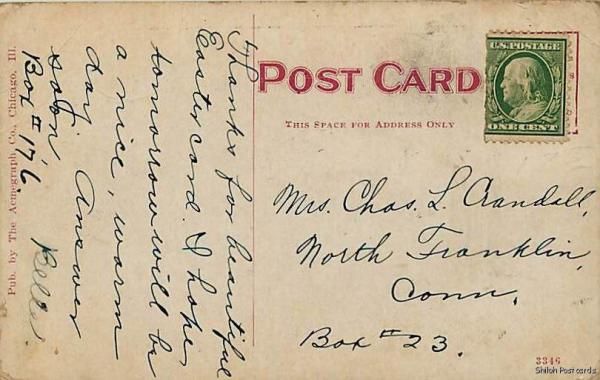 Pub. by The Acmegraph Co., Chicago, Ill.
POST CARD
THIS SPACE FOR ADDRESS ONLY
U.S. POSTAGE
ONE CENT
Thanks for beautiful
Easter card. I hope
tomorrow will be
a nice, warm
day. Answer
soon. Belle.
Box # 176
Mrs. Chas. L. Crandall,
North Franklin,
Conn.
Box # 23.
3346
Shiloh Postcards